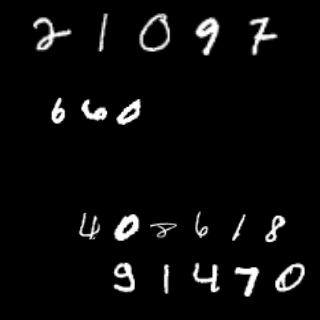 21097
660
408618
91470